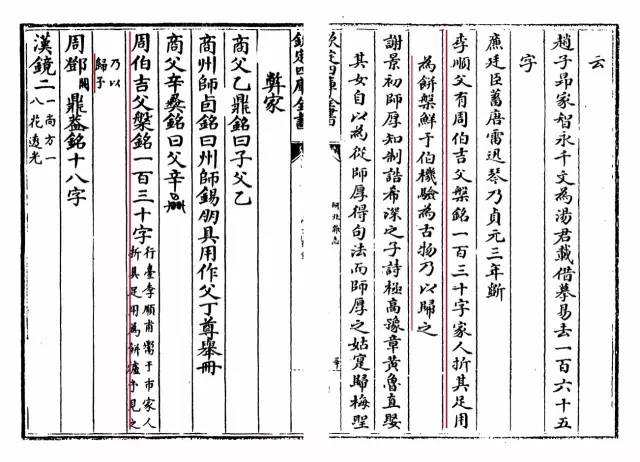 云
趙子昂家智永千文為湯君載借摹易去一百六十五
字
廉廷臣蓄唐雷迅琴乃貞元三年斵
李順父有周伯吉父槃銘一百三十字家人折其足用
為餅槃鮮于伯機驗為古物乃以歸之
謝景初師厚知制誥希深之子詩極高豫章黃魯直娶
其女自以為從師厚得句法而師厚之姑寔歸梅聖
欽定四庫全書
研北雜志
欽定四庫全書
彝家
商父乙鼎銘曰子父乙
商州師卣銘曰州師錫朋具用作父丁尊舉冊
商父辛彝銘曰父辛
周伯吉父槃銘一百三十字行臺李順甫鬻于市家人
折其足用為餅爐予見之
乃以
歸予
周鄧鼎葢銘十八字
闕
漢鏡二一尚方一
八花透光